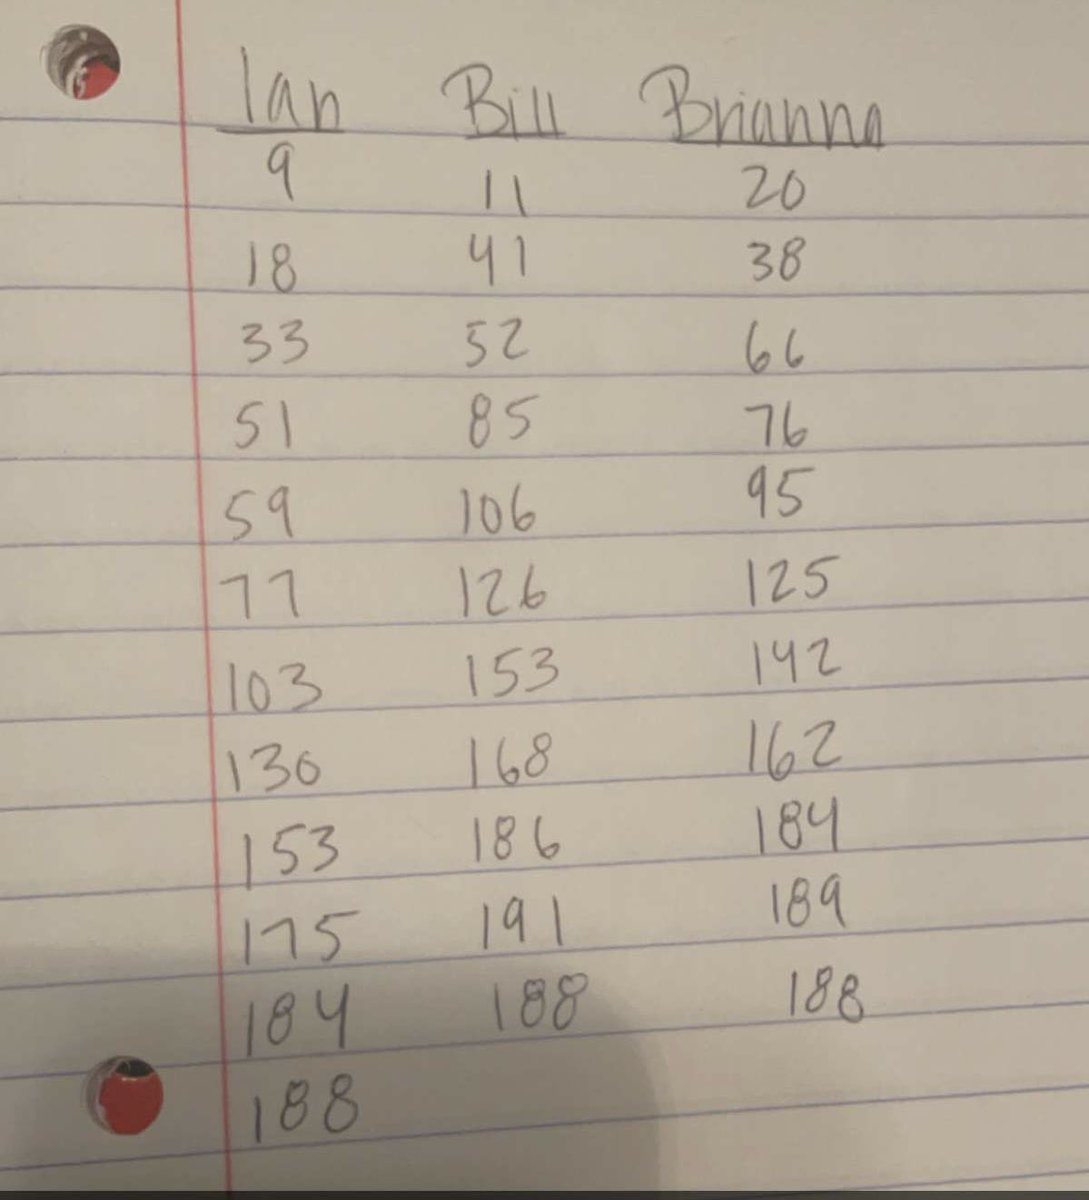 Ian Bill Brianna
9 11 20
18 41 38
33 52 66
51 85 76
59 106 95
77 126 125
103 153 142
130 168 162
153 186 184
175 191 189
184 188 188
188